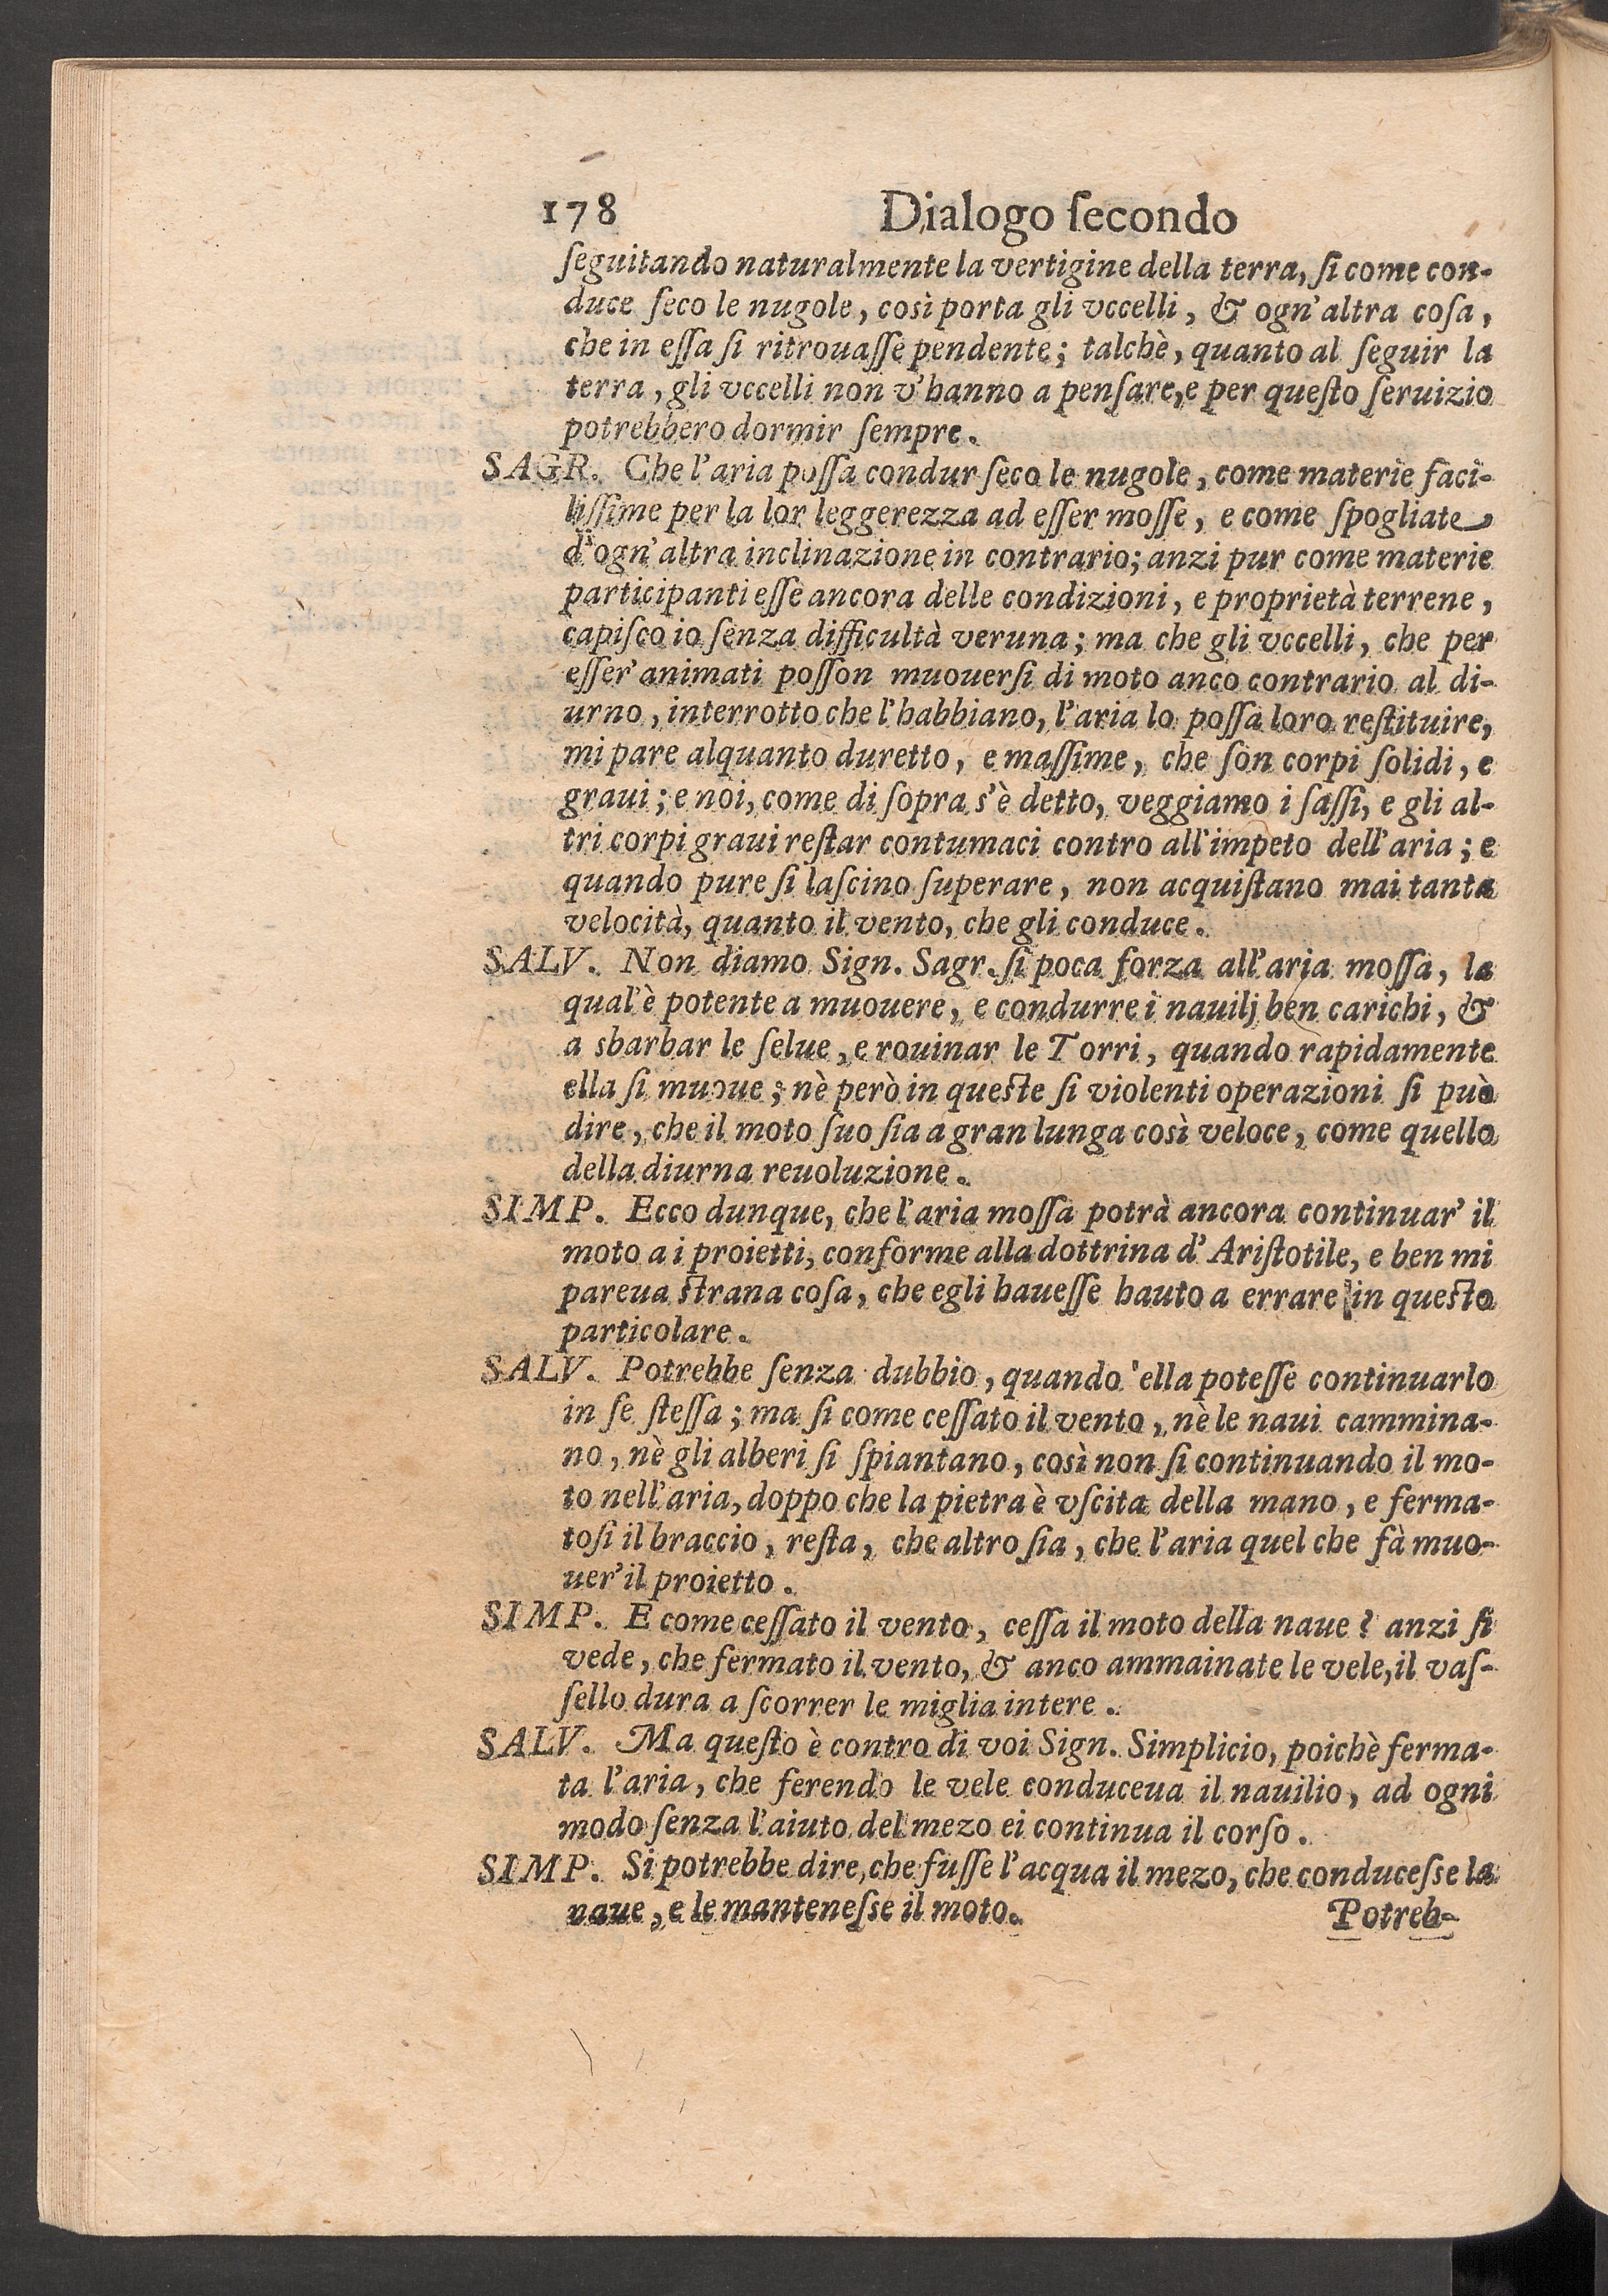 178 Dialogo ſecondo
ſeguitando naturalmente la vertigine della terra, ſi come con-
duce ſeco le nugole, così porta gli vccelli, & ogn'altra coſa,
che in eſſa ſi ritrouaſſe pendente; talchè, quanto al ſeguir la
terra, gli vccelli non v'hanno a penſare, e per queſto ſeruizio
potrebbero dormir ſempre.
SAGR. Che l'aria poſſa condur ſeco le nugole, come materie faci-
liſſime per la lor leggerezza ad eſſer moſſe, e come ſpogliate
d'ogn'altra inclinazione in contrario; anzi pur come materie
participanti eſſe ancora delle condizioni, e proprietà terrene,
capiſco io ſenza difficultà veruna; ma che gli vccelli, che per
eſſer'animati poſſon muouerſi di moto anco contrario al di-
urno, interrotto che l'habbiano, l'aria lo poſſa loro reſtituire,
mi pare alquanto duretto, e maſſime, che ſon corpi ſolidi, e
graui; e noi, come di ſopra s'è detto, veggiamo i ſaſſi, e gli al-
tri corpi graui reſtar contumaci contro all'impeto dell'aria; e
quando pure ſi laſcino ſuperare, non acquiſtano mai tanta
velocità, quanto il vento, che gli conduce.
SALV. Non diamo Sign. Sagr. ſi poca forza all'aria moſſa, la
qual'è potente a muouere, e condurre i nauilj ben carichi, &
a sbarbar le ſelue, e rouinar le Torri, quando rapidamente
ella ſi muoue; nè però in queſte ſi violenti operazioni ſi può
dire, che il moto ſuo ſia a gran lunga così veloce, come quello
della diurna reuoluzione.
SIMP. Ecco dunque, che l'aria moſſa potrà ancora continuar' il
moto a i proietti, conforme alla dottrina d' Ariſtotile, e ben mi
pareua ſtrana coſa, che egli haueſſe hauto a errare in queſto
particolare.
SALV. Potrebbe ſenza dubbio, quando 'ella poteſſe continuarlo
in ſe ſteſſa; ma ſi come ceſſato il vento, nè le naui cammina-
no, nè gli alberi ſi ſpiantano, così non ſi continuando il mo-
to nell'aria, doppo che la pietra è vſcita della mano, e ferma-
toſi il braccio, reſta, che altro ſia, che l'aria quel che fà muo-
uer'il proietto.
SIMP. E come ceſſato il vento, ceſſa il moto della naue? anzi ſi
vede, che fermato il vento, & anco ammainate le vele, il vaſ-
ſello dura a ſcorrer le miglia intere.
SALV. Ma queſto è contro di voi Sign. Simplicio, poichè ferma-
ta l'aria, che ferendo le vele conduceua il nauilio, ad ogni
modo ſenza l'aiuto del mezo ei continua il corſo.
SIMP. Si potrebbe dire, che fuſſe l'acqua il mezo, che conduceſse la
naue, e le manteneſse il moto.
Potreb-